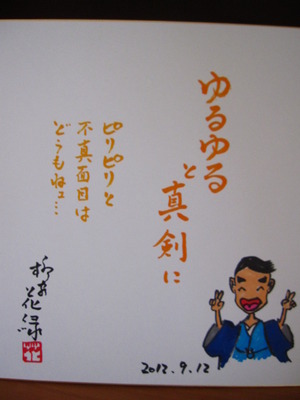 ゆるゆる
と
真剣に
ピリピリと
不真面目は
どうもねェ…
柳家
花緑
花
2012.9.12